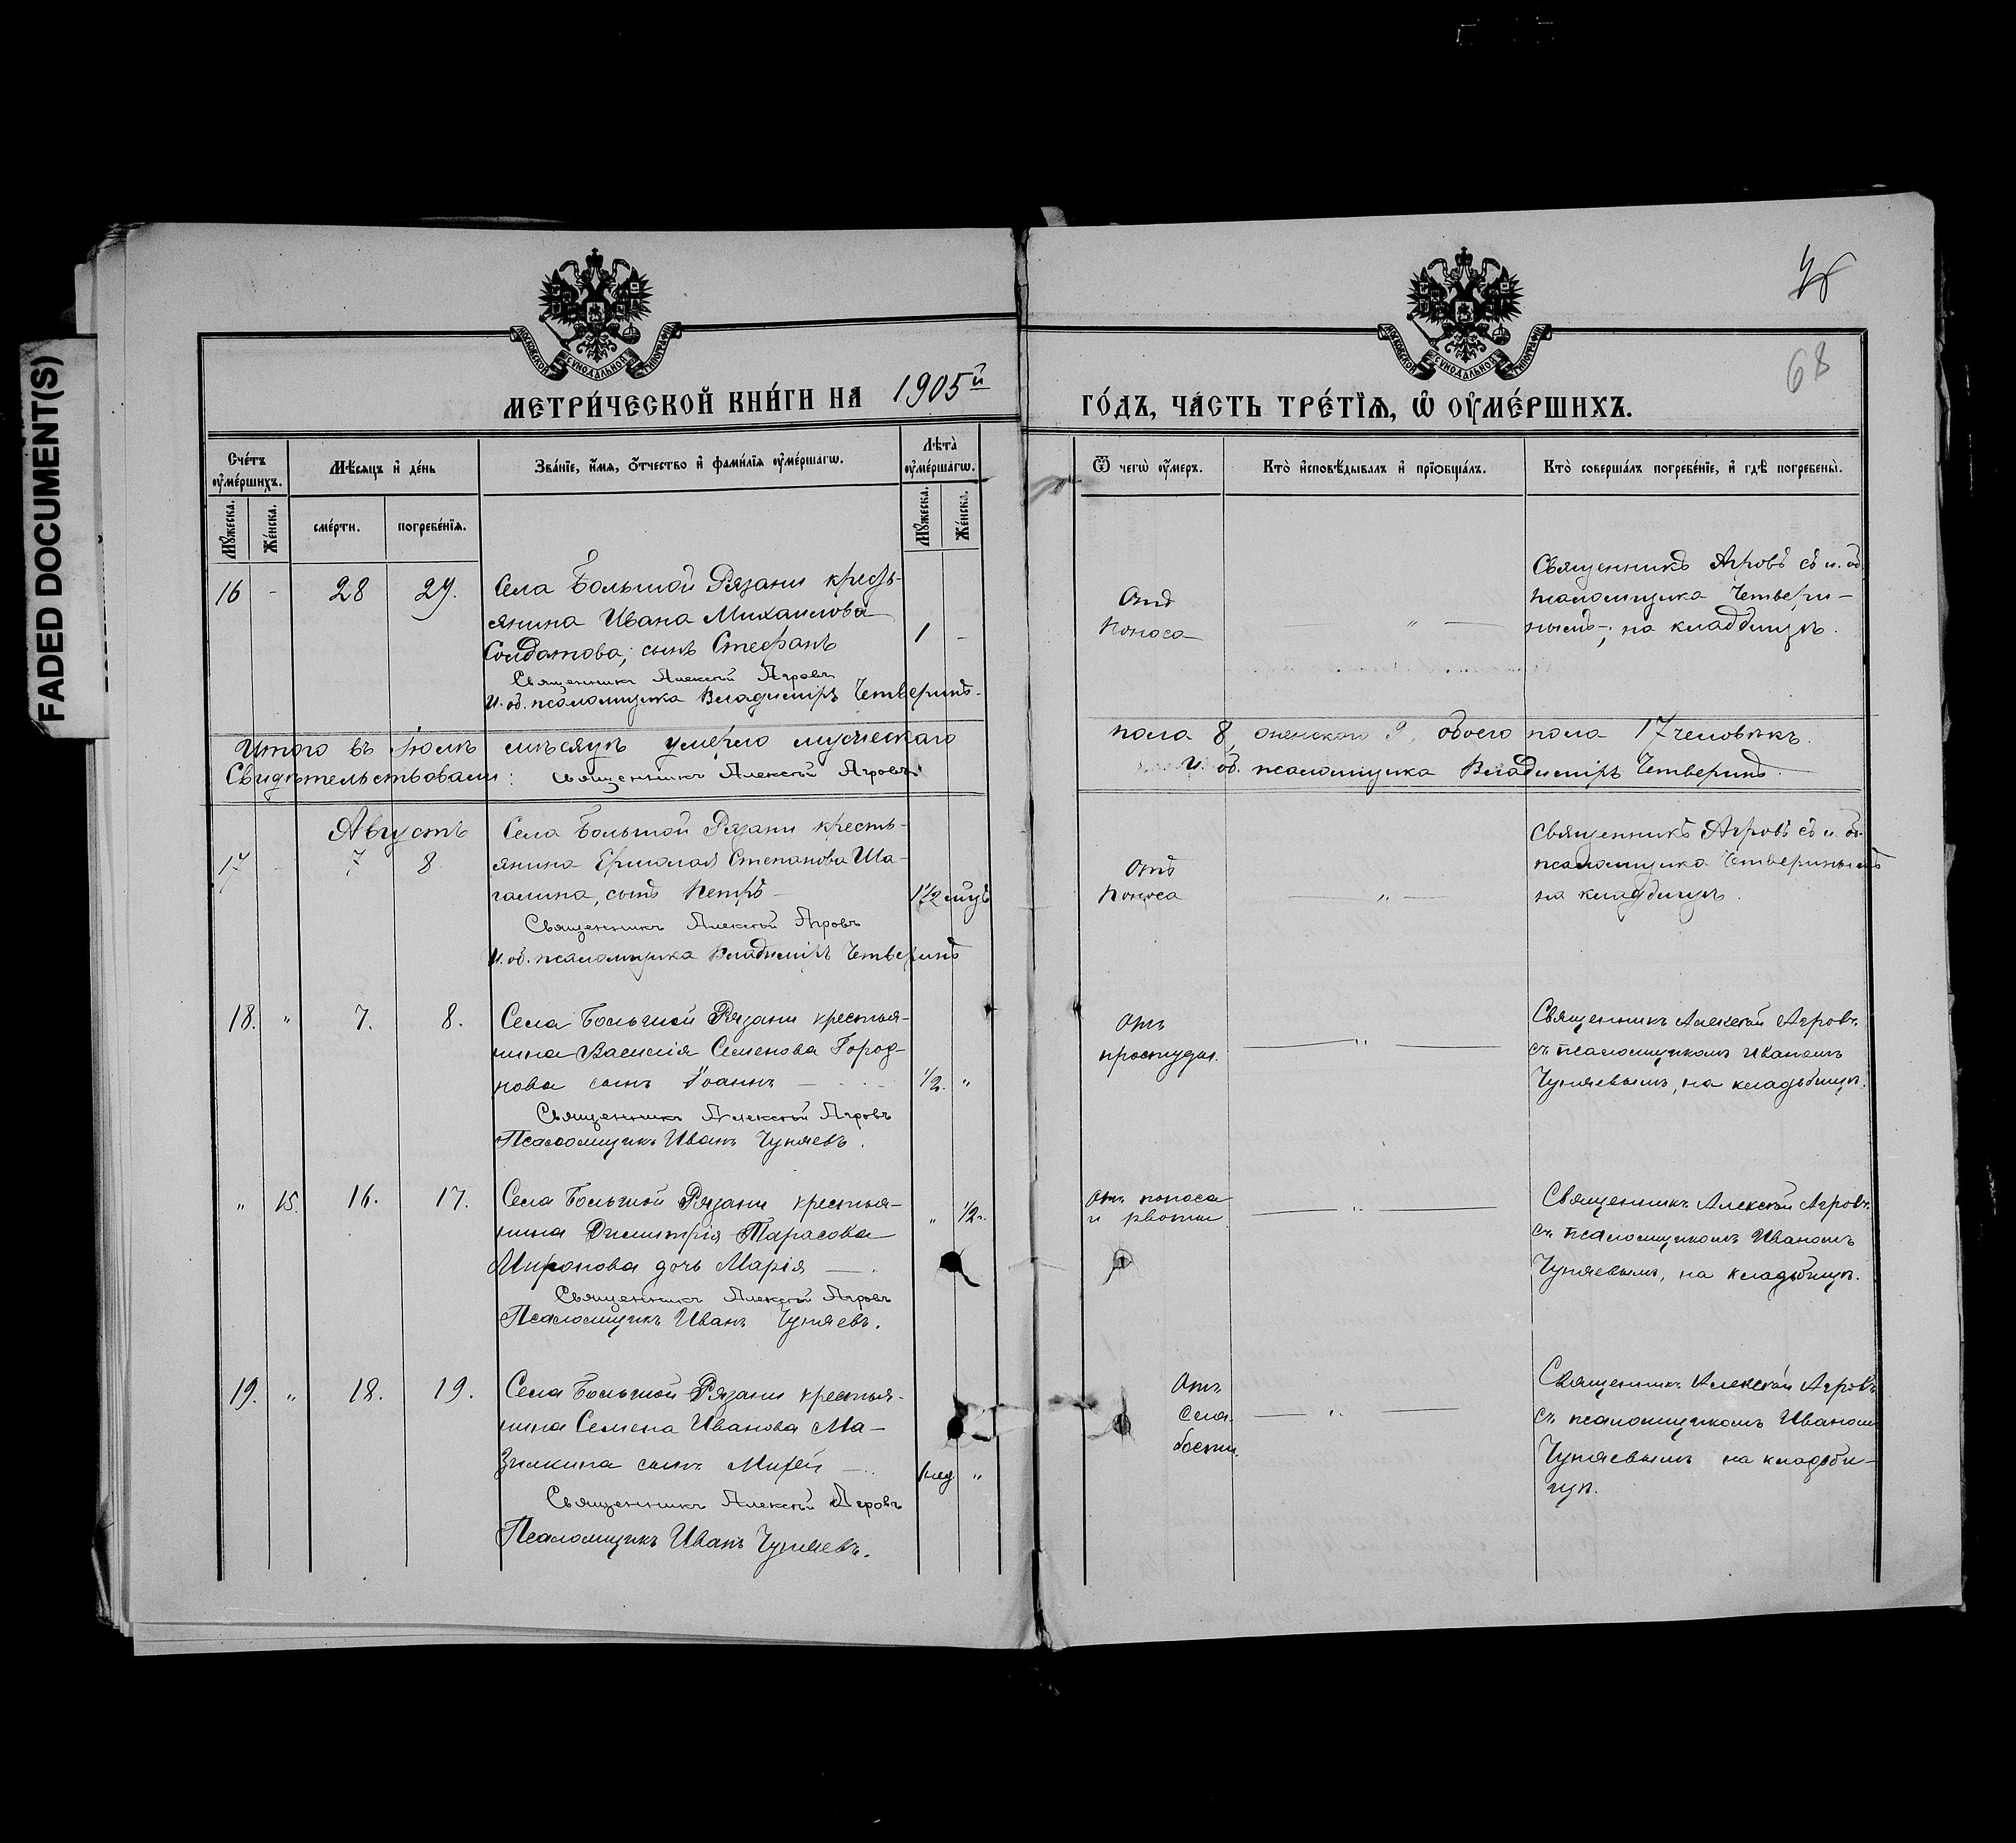 FADED DOCUMENT(S)
68
МОСКОВСКОЙ СѴНОДАЛЬНОЙ ТИПОГРАФІИ
МОСКОВСКОЙ СѴНОДАЛЬНОЙ ТИПОГРАФІИ
МЕТРИ́ЧЕСКОЙ КНИ́ГИ НА 1905й ГО́ДЪ, ЧА́СТЬ ТРЕ́ТІѦ, Ѡ҆ ОУ҆МЕ́РШИХЪ.
Сче́тъ оу҆ме́ршихъ.
Мѣ́сѧцъ и҆ де́нь
Зва́нїе, и҆́мѧ, ѻ҆́тчество и҆ фами́лїѧ оу҆ме́ршагѡ.
Лѣ́та̀ оу҆ме́ршагѡ.
Ѿ чегѡ̀ оу҆́меръ.
Кто̀ и҆сповѣ́дывалъ и҆ прїѡбща́лъ.
Кто̀ соверша́лъ погребе́нїе, и҆ гдѣ̀ погребены̀.
Мꙋ́жеска.
Же́нска.
сме́рти.
погребе́нїѧ.
Мꙋ́жеска.
Же́нска.
16 - 28 29. Села Большой Рязани кресть-
янина Ивана Михаилова
Солдатова, сынъ Стефанъ 1 -
Священникъ Алексѣй Агровъ
И. об. псаломщика Владиміръ Четверинъ.
Отъ
Поноса
"
Священникъ Агровъ съ и. об.
псаломщика Четвери-
нымъ, на кладбищѣ.
Итого въ Іюлѣ мѣсяцѣ умерло мужескаго пола 8, женского 9, обоего пола 17 человѣкъ.
Свидѣтельствовали: Священникъ Алексѣй Агровъ И. об. псаломщика Владиміръ Четверинъ.
Августъ
17 - 7 8 Села Большой Рязани кресть-
янина Ермолая Степанова Ша-
галина, сынъ Петръ 1 1/2 мцъ
Священникъ Алексѣй Агровъ
И. об. псаломщика Владиміръ Четверинъ
Отъ
Поноса
"
Священникъ Агровъ съ и. об.
псаломщика Четверинымъ
на кладбищѣ.
18. " 7. 8. Села Большой Рязани крестья-
нина Василія Семенова Город-
нова сынъ Іоаннъ 1/2. "
Священникъ Алексѣй Агровъ
Псаломщикъ Иванъ Чуняевъ.
Отъ
простуды.
"
Священникъ Алексѣй Агровъ.
съ псаломщикомъ Иваномъ
Чуняевымъ, на кладбищѣ.
" 15. 16. 17. Села Большой Рязани крестья-
нина Димитрія Тарасова " 1/2.
Миронова дочь Марія
Священникъ Алексѣй Агровъ
Псаломщикъ Иванъ Чуняевъ.
Отъ поноса
и рвоты
"
Священникъ Алексѣй Агровъ.
съ псаломщикомъ Иваномъ
Чуняевымъ, на кладбищѣ.
19. " 18. 19. Села Большой Рязани крестья-
нина Семена Иванова Ма-
зилкина сынъ 1 нед "
Священникъ Алексѣй Агровъ
Псаломщикъ Иванъ Чуняевъ.
Отъ
сла-
бости.
"
Священникъ Алексѣй Агровъ
съ псаломщикомъ Иваномъ
Чуняевымъ на кладби-
щѣ.